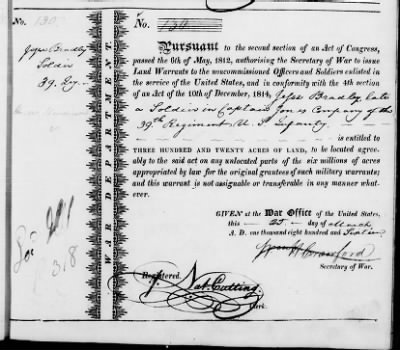 No. 130.
No. 130
Joseph Bradley
Soldier
39. Reg.
WAR DEPARTMENT.
Pursuant to the second section of an Act of Congress,
passed the 6th of May, 1812, authorising the Secretary of War to issue
Land Warrants to the noncommissioned Officers and Soldiers enlisted in
the service of the United States, and in conformity with the 4th section
of an Act of the 10th of December, 1814, Joseph Bradley late
a Soldier in Captain Jones Company of the
39th Regiment U. S. Infantry
is entitled to
THREE HUNDRED AND TWENTY ACRES OF LAND, to be located agree-
ably to the said act on any unlocated parts of the six millions of acres
appropriated by law for the original grantees of such military warrants;
and this warrant is not assignable or transferable in any manner what-
ever.
GIVEN at the War Office of the United States,
this 25 day of March
A. D. one thousand eight hundred and Sixteen
Wm H Crawford
Secretary of War.
318
Registered.
Nat. Cutting
Clerk.